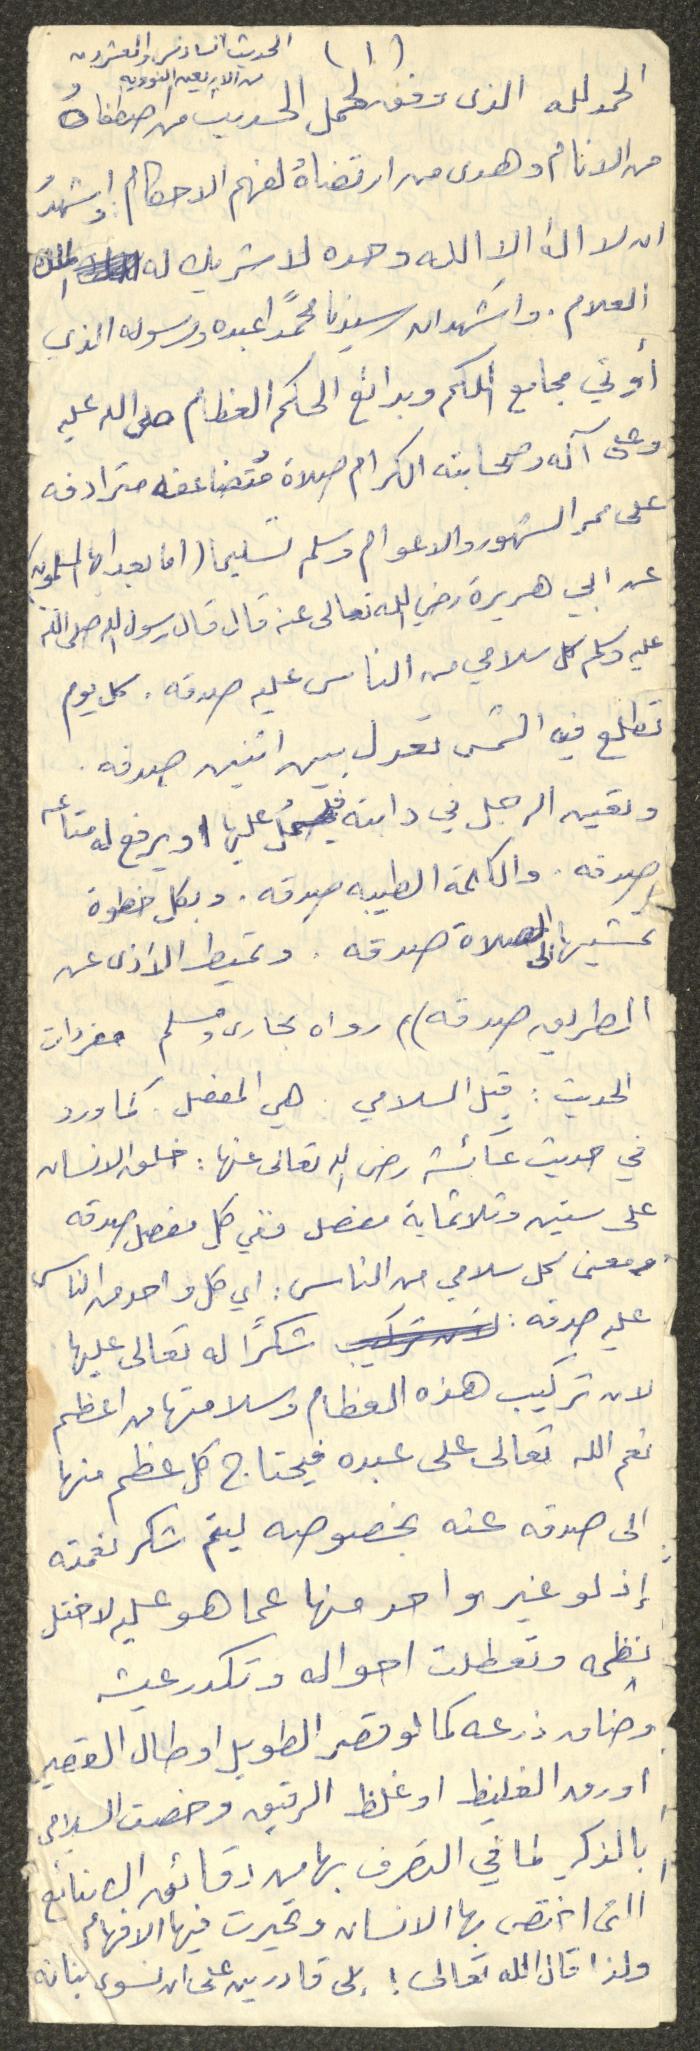 (١) الحديث السادس والعشرون
من الاربعين النوويه
الحمد لله الذى وفق لحمل الحديث من اصطفاهُ
من الانام وهدى من ارتضاهُ لفهم الاحكام: واشهدُ
ان لا الهَ الا الله وحده لا شريك له الملك
العلام. واشهد ان سيدنا محمدًا عبده ورسوله الذي
أوتي مجامع الكلم وبدائع الحكم العظام صلى الله عليه
وعلى آله وصحابته الكرام صلاة مُتضاعفه مترادفه
على ممر الشهور والاعوام وسلم تسليما (اما بعد ايها المسلمون)
عن ابي هريرة رضي الله تعالى عنه قال قال رسول الله صلى الله
عليه وسلم كل سلامي من الناس عليه صدقه. كل يوم
تطلع فيه الشمس تعدل بين اثنين صدقه.
وتعين الرجل في دابته فيحملُ عليها او يرفع له متاعه
صدقه. والكلمة الطيبه صدقه. وبكل خطوة
تمشيها الى الصلاة صدقه. وتميط الأذى عن
الطريق صدقه)) رواه بخارى ومسلم مفردات
الحديث: قيل السلامي. هي المفصل. كما ورد
في حديث عائشة رضى الله تعالى عنها: خلق الانسان
على ستين وثلاثماية مفصل ففي كل مفصل صدقه
ومعنى كل سلامي من الناس: اي كل واحد من الناس
عليه صدقه: شكرًا له تعالى عليها
لان تركيب هذه العظام وسلامتها من اعظم
نعم الله تعالى على عبده فيحتاج كل عظم منها
الى صدقه عنه بخصوصه ليتم شكر نعمته
إذ لو غير واحد منها عما هو عليه لاختل
نظمه وتعطلت احواله وتكدر عيشه
وضاق ذرعه كما لو قصر الطويل او طال القصير
او رق الغليظ او غلظ الرقيق وخصت السلامي
بالذكر لما في التصرف بها من دقائق الصنائع
التى اختص بها الانسان وتحيرت فيها الافهام
ولذا قال الله تعالى! بلى قادرين على ان نسوى بنانه